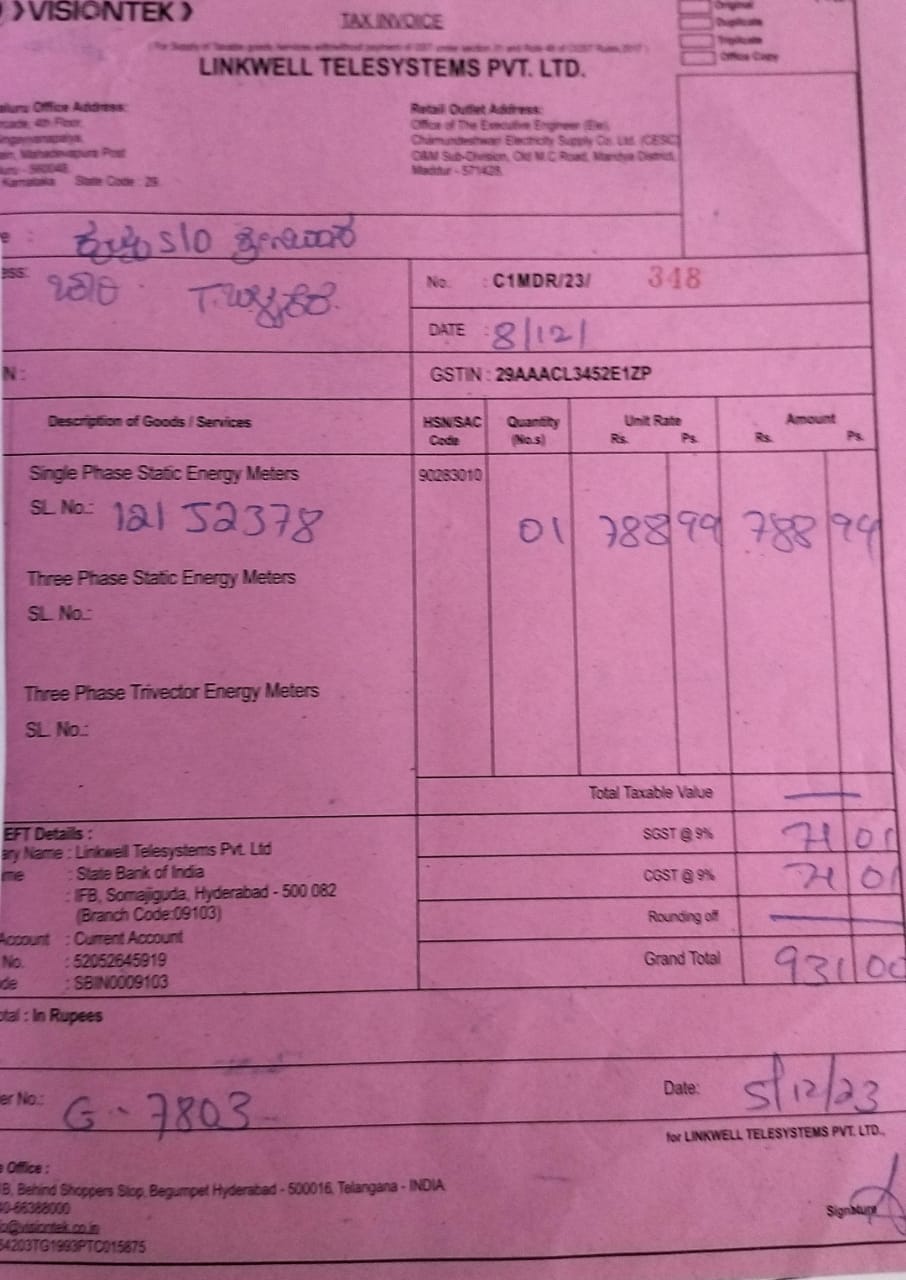 ❭VISIONTEK❭
TAX INVOICE
Original
Duplicate
Triplicate
Office Copy
LINKWELL TELESYSTEMS PVT. LTD.
Office Address:
4th Floor,
Mahadevapura Post
Karnataka State Code : 29
Retail Outlet Address:
Office of The Executive Engineer (Ele),
Chamundeshwari Electricity Supply Co. Ltd. (CESC)
O&M Sub-Division, Old M.C Road, Mandya District,
Maddur - 571428.
S/O
No. : C1MDR/23/ 348
DATE : 8/12/
GSTIN : 29AAACL3452E1ZP
Description of Goods / Services HSN/SAC Code Quantity (No.s) Unit Rate Rs. Ps. Amount Rs. Ps.
Single Phase Static Energy Meters 90283010
SL. No.: 12152378 01 788 99 788 99
Three Phase Static Energy Meters
SL. No.:
Three Phase Trivector Energy Meters
SL. No.:
Total Taxable Value —
EFT Details :
SGST @ 9% 71 01
Name : Linkwell Telesystems Pvt. Ltd
: State Bank of India
CGST @ 9% 71 01
: IFB, Somajiguda, Hyderabad - 500 082
(Branch Code:09103)
Rounding off —
Account : Current Account
No. : 52052645919
Grand Total 931 00
: SBIN0009103
: In Rupees
No.: G - 7803
Date: 5/12/23
for LINKWELL TELESYSTEMS PVT. LTD.,
Office :
Behind Shoppers Stop, Begumpet Hyderabad - 500016, Telangana - INDIA
66388000
@visiontek.co.in
Signature
54203TG1993PTC015875